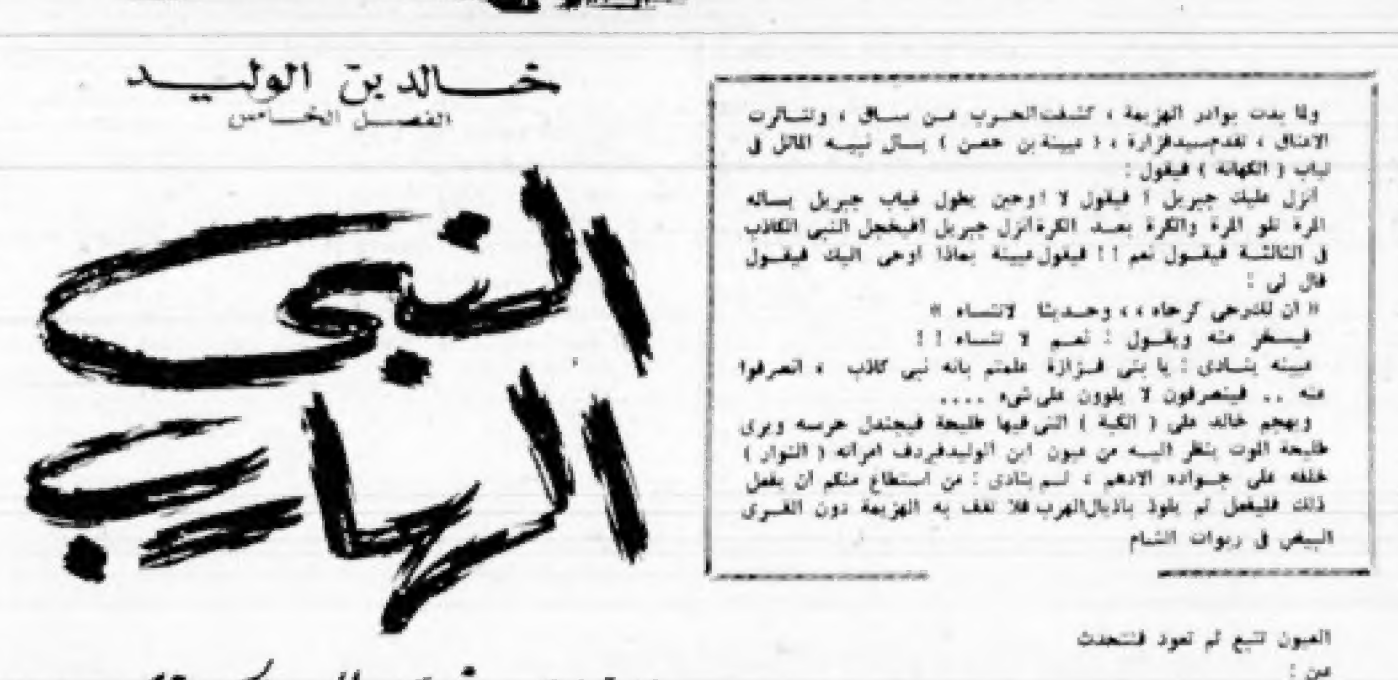 خالد بن الوليد
الفصل الخامس
النبي
الهارب
ولما بدت بوادر الهزيمة ، كشفت الحرب عن ساق ، وتناثرت
الاعناق ، تقدم سيد فزارة ، ( عيينة بن حصن ) يسال نبيه الماثل في
ثياب ( الكهانة ) فيقول :
أنزل عليك جبريل ؟ فيقول لا ! وحين يطول غياب جبريل يساله
المرة تلو المرة والكرة بعد الكرة أنزل جبريل ؟ فيخجل النبي الكاذب
في الثالثة فيقول نعم !! فيقول عيينة بماذا اوحى اليك فيقول
قال لي :
« ان لك رحى كرحاه ،، وحديثا لاتنساه »
فيسخر منه ويقول : نعم لا تنساه !!
عيينه ينادى : يا بنى فزارة علمتم بانه نبي كاذب ، انصرفوا
عنه .. فينصرفون لا يلوون على شيء ....
ويهجم خالد على ( القبة ) التي فيها طليحة فيجندل حرسه ويرى
طليحة الموت ينظر اليه من عيون ابن الوليد فيردف امراته ( النوار )
خلفه على جواده الادهم ، ثم ينادى : من استطاع منكم ان يفعل
ذلك فليفعل ثم يلوذ باذيال الهرب فلا تقف به الهزيمة دون القرى
البيض في ربوات الشام
العيون تتبع ثم تعود فتتحدث
عن :